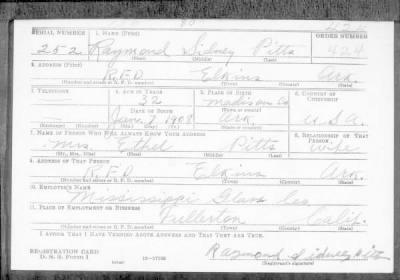 SERIAL NUMBER 1. NAME (Print) ORDER NUMBER
252 Raymond Sidney Pitts 424
(First) (Middle) (Last)
2. ADDRESS (Print)
R.F.D. Elkins Ark.
(Number and street or R. F. D. number) (Town) (County) (State)
3. TELEPHONE 4. AGE IN YEARS 5. PLACE OF BIRTH 6. COUNTRY OF CITIZENSHIP
32 Madison Co
DATE OF BIRTH (Town or county)
7 1908 Ark. U.S.A.
(Exchange) (Number) (Mo.) (Day) (Yr.) (State or country)
7. NAME OF PERSON WHO WILL ALWAYS KNOW YOUR ADDRESS 8. RELATIONSHIP OF THAT PERSON
Mrs. Ethel Pitts wife
(Mr., Mrs., Miss) (First) (Middle) (Last)
9. ADDRESS OF THAT PERSON
R.F.D. Elkins Ark.
(Number and street or R. F. D. number) (Town) (County) (State)
10. EMPLOYER'S NAME
Mississippi Glass Co.
11. PLACE OF EMPLOYMENT OR BUSINESS
Fullerton Calif.
(Number and street or R. F. D. number) (Town) (County) (State)
I AFFIRM THAT I HAVE VERIFIED ABOVE ANSWERS AND THAT THEY ARE TRUE.
REGISTRATION CARD Raymond Sidney Pitts
D. S. S. Form 1 (Registrant's signature)